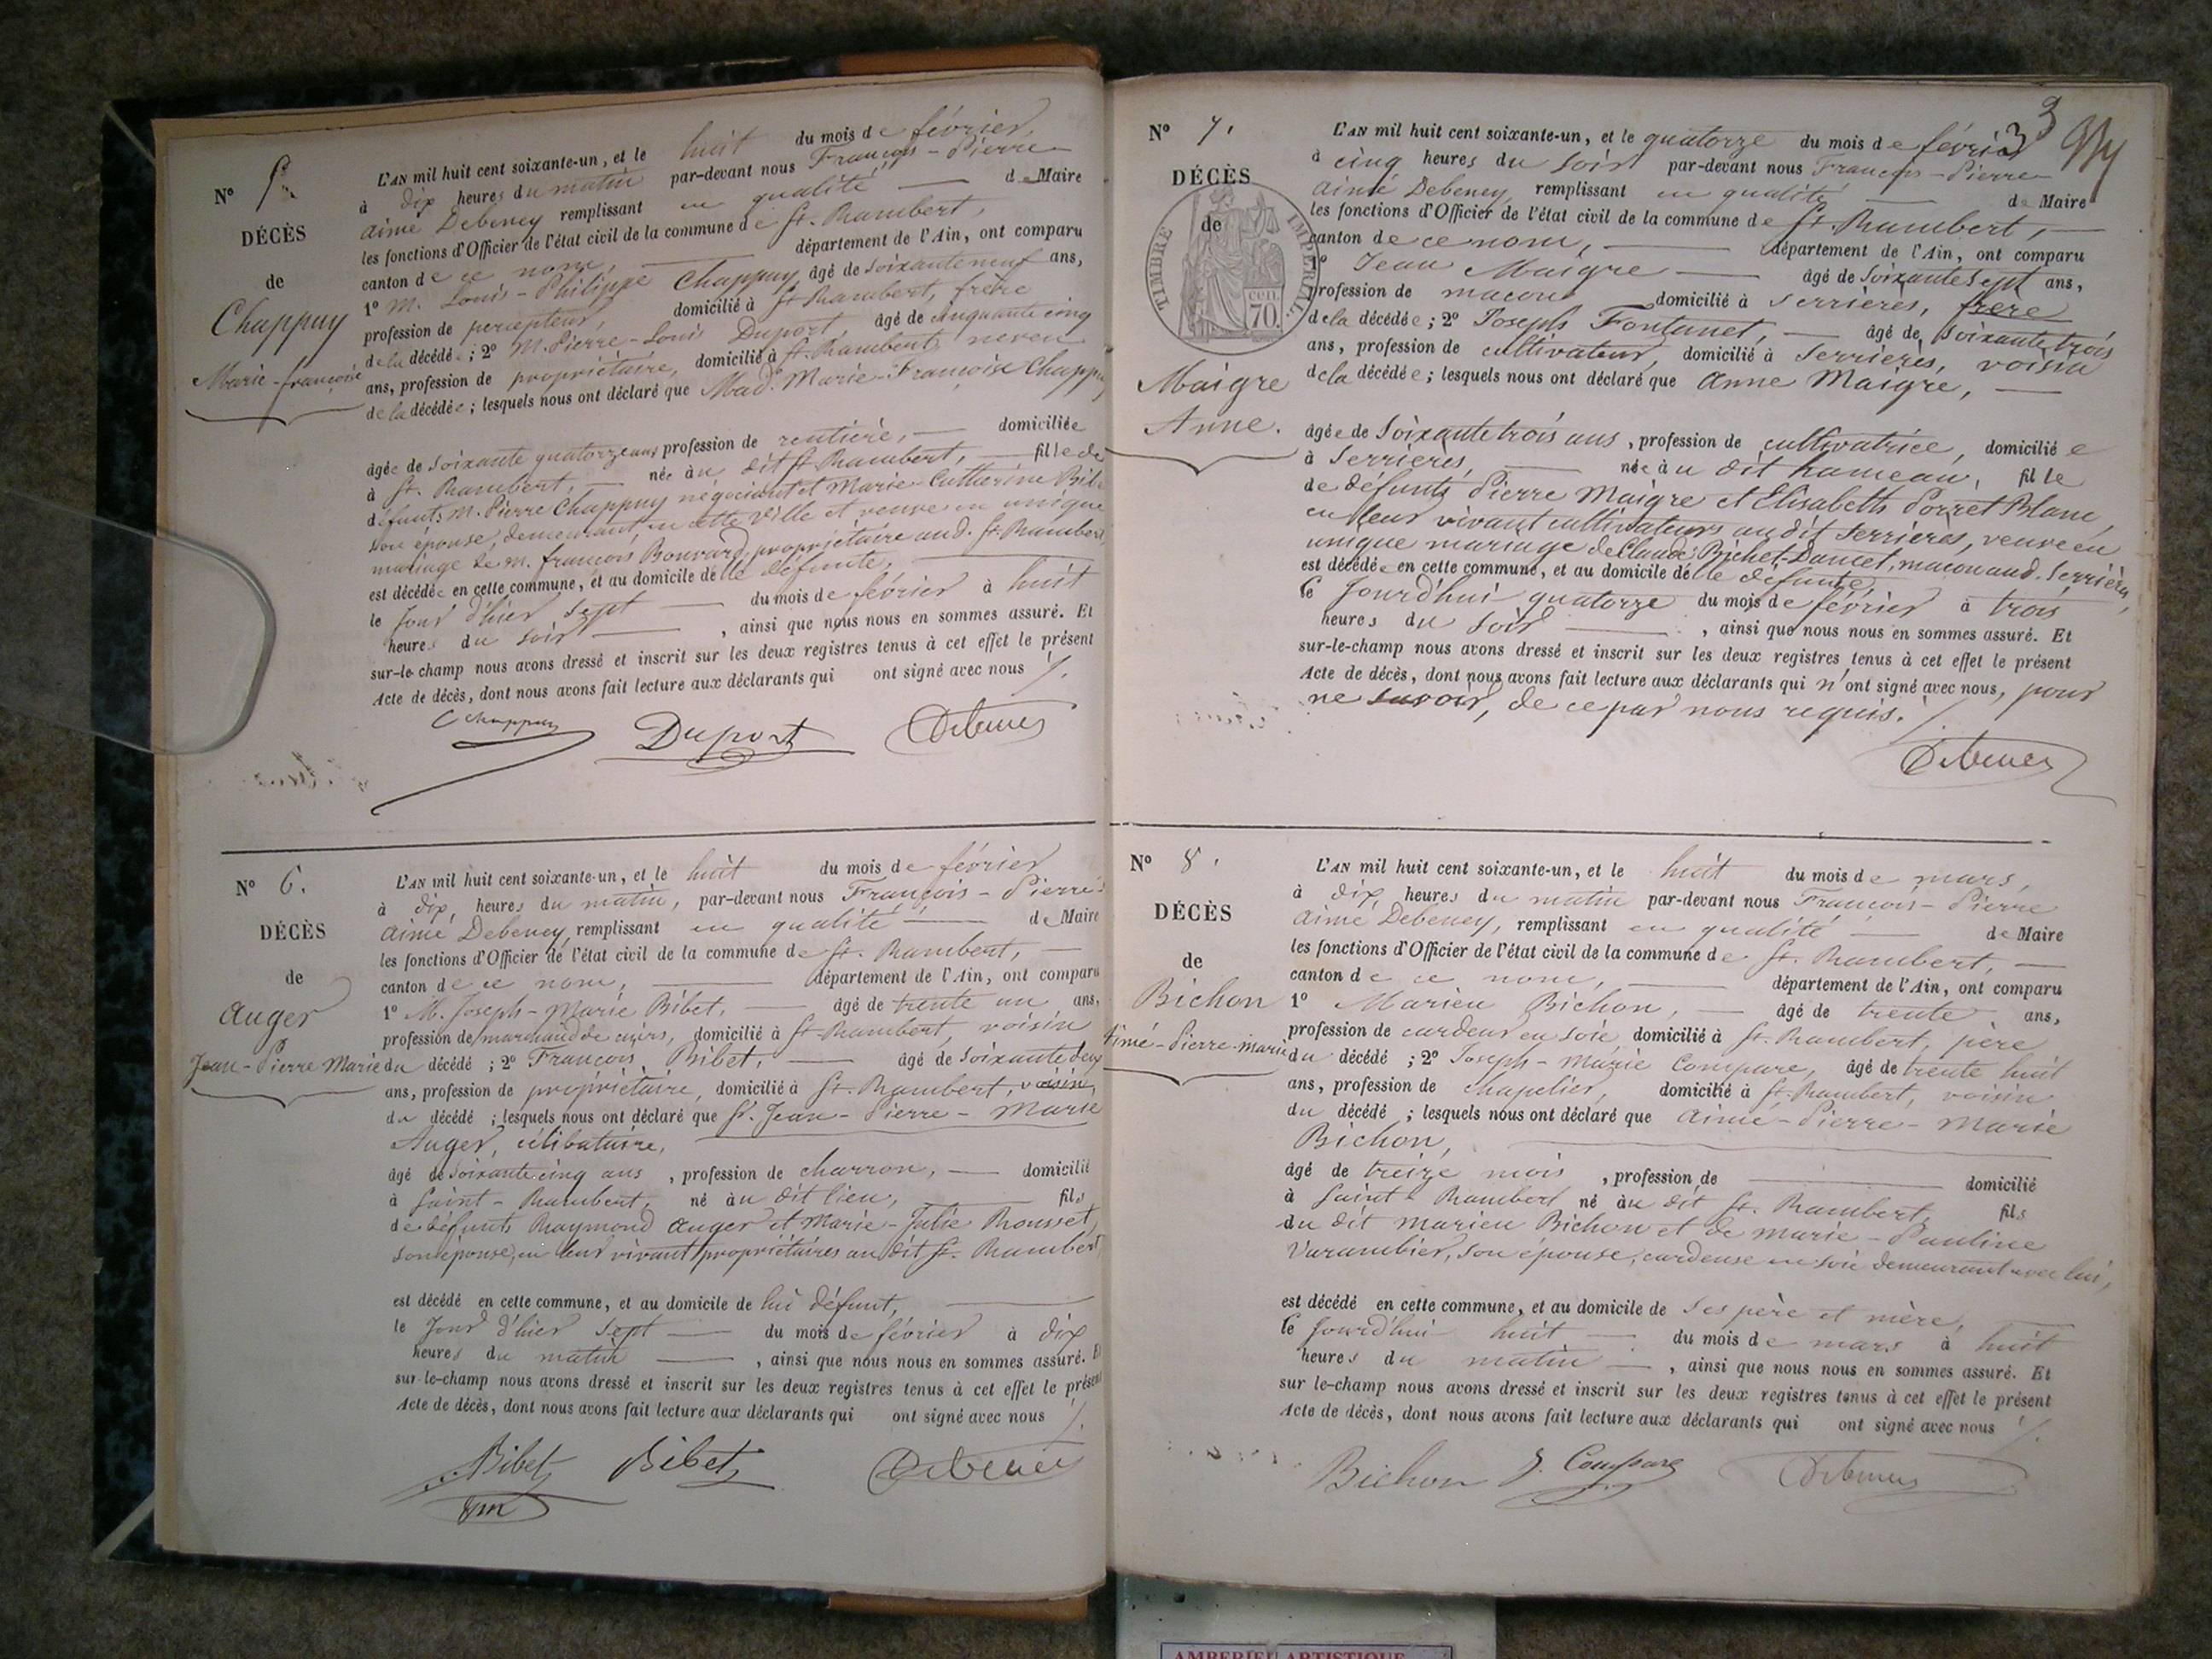 N° 5.
DÉCÈS
de
Chappuy
Marie-françoise
L'AN mil huit cent soixante-un, et le huit du mois de février
à dix heures du matin par-devant nous François-Pierre
aimé Debeney remplissant en qualité de Maire
les fonctions d'Officier de l'état civil de la commune de St. Rambert,
canton de ce nom, département de l'Ain, ont comparu
1° M. Louis-Philippe Chappuy âgé de soixante neuf ans,
profession de percepteur, domicilié à St Rambert, frère
de la décédée; 2° M. Pierre-Louis Duport, âgé de cinquante cinq
ans, profession de propriétaire, domicilié à St. Rambert, neveu
de la décédée; lesquels nous ont déclaré que Mad.e Marie-Françoise Chappuy
âgée de soixante quatorze ans profession de rentière, domiciliée
à St. Rambert, née au dit St Rambert, fille de
défunts M. Pierre Chappuy négociant et Marie-Catherine
son épouse, demeurant en cette ville et veuve en unique
mariage de M. françois Bonvard, propriétaire aud. St. Rambert
est décédée en cette commune, et au domicile de lle défunte,
le jour d'hier sept du mois de février à huit
heures du soir, ainsi que nous nous en sommes assuré. Et
sur-le-champ nous avons dressé et inscrit sur les deux registres tenus à cet effet le présent
Acte de décès, dont nous avons fait lecture aux déclarants qui ont signé avec nous
Chappuy Duport Debeney
N° 6.
DÉCÈS
de
Auger
Jean-Pierre Marie
L'AN mil huit cent soixante-un, et le huit du mois de février
à dix heures du matin, par-devant nous François-Pierre
aimé Debeney, remplissant en qualité de Maire
les fonctions d'Officier de l'état civil de la commune de St. Rambert,
canton de ce nom, département de l'Ain, ont comparu
1° M. Joseph-Marie Bibet, âgé de trente un ans,
profession de marchand de cuirs, domicilié à St Rambert, voisin
du décédé; 2° François Bibet, âgé de soixante deux
ans, profession de propriétaire, domicilié à St. Rambert, voisin
du décédé; lesquels nous ont déclaré que Sr. Jean-Pierre-Marie
Auger, célibataire,
âgé de soixante cinq ans, profession de charron, domicilié
à Saint-Rambert, né au dit lieu, fils
de défunts Raymond Auger et Marie-Julie Rousset,
son épouse, en leur vivant propriétaires au dit St. Rambert
est décédé en cette commune, et au domicile de lui défunt,
le jour d'hier sept du mois de février à dix
heures du matin, ainsi que nous nous en sommes assuré. Et
sur-le-champ nous avons dressé et inscrit sur les deux registres tenus à cet effet le présent
Acte de décès, dont nous avons fait lecture aux déclarants qui ont signé avec nous
Bibet Bibet Debeney
jm
3
3
N° 7.
DÉCÈS
de
TIMBRE IMPÉRIAL
CEN.
70.
Maigre
Anne.
L'AN mil huit cent soixante-un, et le quatorze du mois de février
à cinq heures du soir par-devant nous François-Pierre
aimé Debeney, remplissant en qualité de Maire
les fonctions d'Officier de l'état civil de la commune de St. Rambert,
canton de ce nom, département de l'Ain, ont comparu
1° Jean Maigre âgé de soixante sept ans,
profession de macon domicilié à Serrières, frère
de la décédée; 2° Joseph Fontanet, âgé de soixante trois
ans, profession de cultivateur, domicilié à Serrières, voisin
de la décédée; lesquels nous ont déclaré que Anne Maigre,
âgée de soixante trois ans, profession de cultivatrice, domiciliée
à Serrières, née au dit hameau, fille
de défunts Pierre Maigre et Elisabeth Porret Blanc,
en leur vivant cultivateurs au dit Serrières, veuve en
unique mariage de Claude Bichet-Dancet, macon aud. Serrières,
est décédée en cette commune, et au domicile de lle défunte
le jourd'hui quatorze du mois de février à trois
heures du soir, ainsi que nous nous en sommes assuré. Et
sur-le-champ nous avons dressé et inscrit sur les deux registres tenus à cet effet le présent
Acte de décès, dont nous avons fait lecture aux déclarants qui n'ont signé avec nous, pour
ne savoir, de ce par nous requis.
Debeney
N° 8.
DÉCÈS
de
Bichon
Aimé-Pierre-marie
L'AN mil huit cent soixante-un, et le huit du mois de mars,
à dix heures du matin par-devant nous François-Pierre
aimé Debeney, remplissant en qualité de Maire
les fonctions d'Officier de l'état civil de la commune de St. Rambert,
canton de ce nom, département de l'Ain, ont comparu
1° Marien Bichon, âgé de trente ans,
profession de cardeur en soie, domicilié à St. Rambert, père
du décédé; 2° Joseph-Marie Compare, âgé de trente huit
ans, profession de chapelier, domicilié à St. Rambert, voisin
du décédé; lesquels nous ont déclaré que Aimé-Pierre-Marie
Bichon,
âgé de treize mois, profession de domicilié
à Saint-Rambert né au dit St. Rambert, fils
du dit Marien Bichon et de Marie-Pauline
Varambier, son épouse, cardeuse en soie demeurant avec lui,
est décédé en cette commune, et au domicile de ses père et mère,
le jourd'hui huit du mois de mars à huit
heures du matin, ainsi que nous nous en sommes assuré. Et
sur le-champ nous avons dressé et inscrit sur les deux registres tenus à cet effet le présent
Acte de décès, dont nous avons fait lecture aux déclarants qui ont signé avec nous
Bichon J. Compare Debeney
AMBERIEU ARTISTIQUE